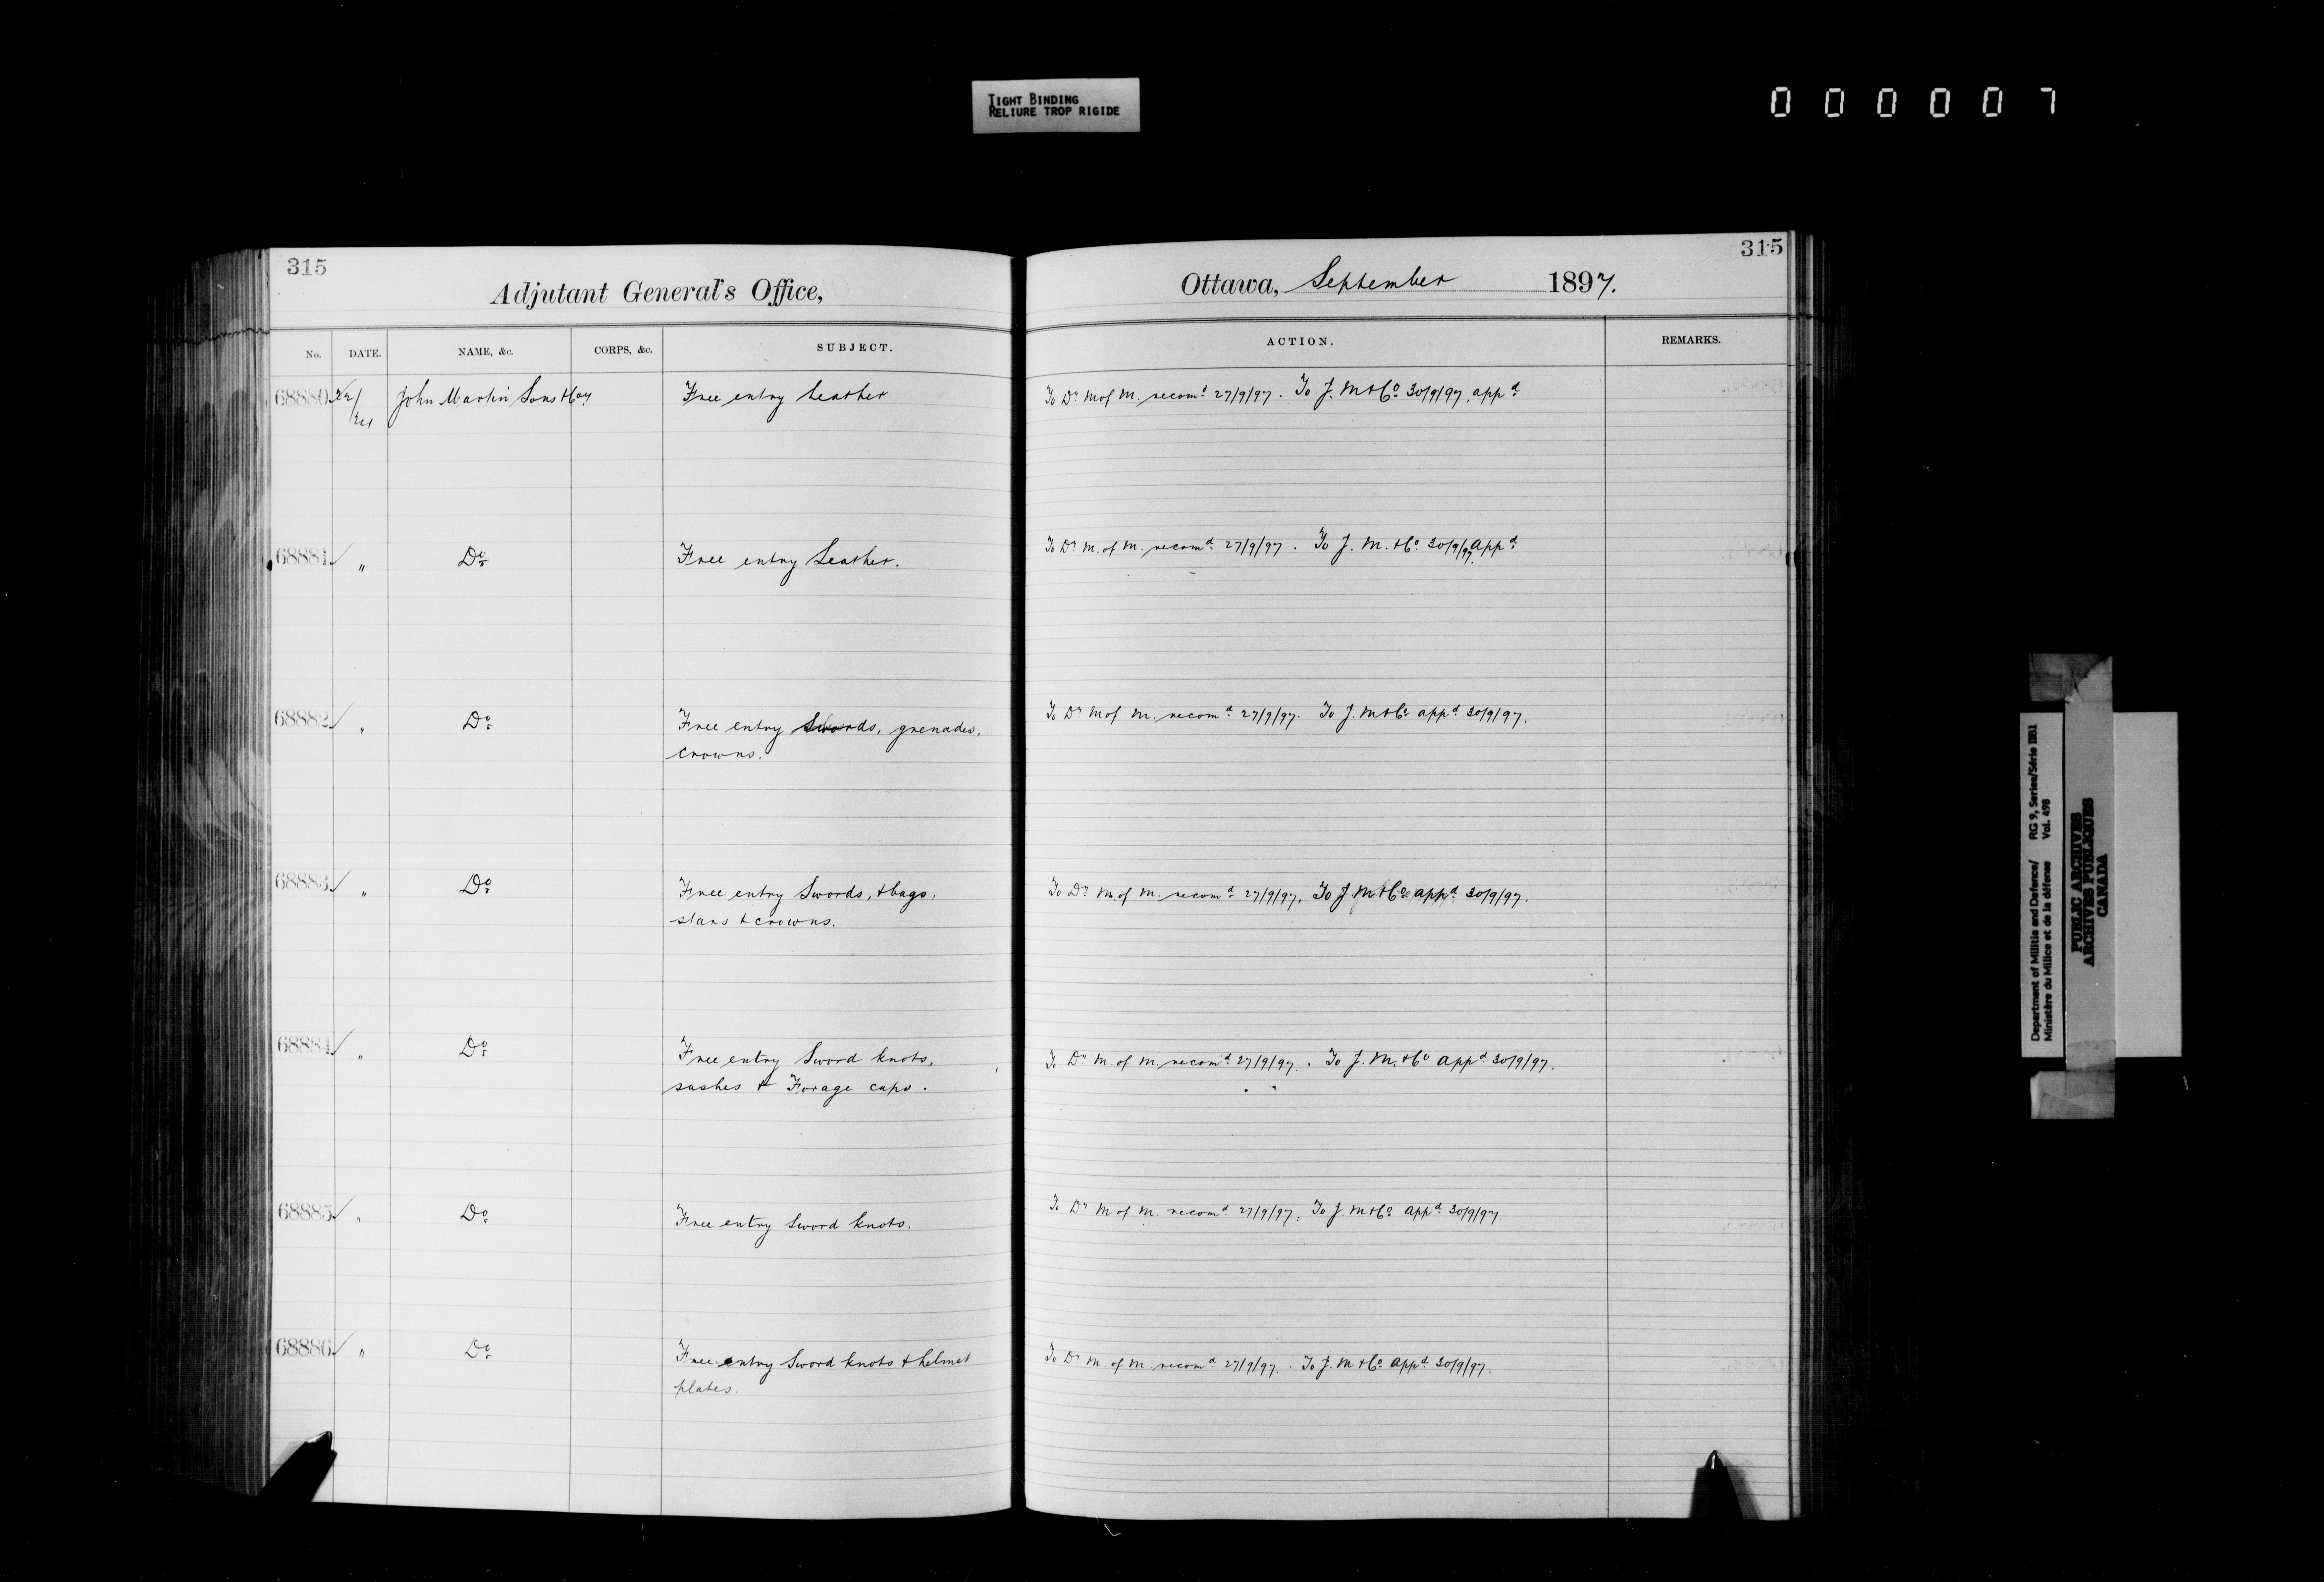 TIGHT BINDING
RELIURE TROP RIGIDE
000007
315
Adjutant General's Office,
No. DATE. NAME, &c. CORPS, &c. SUBJECT.
68880 John Martin Sons & Coy Free entry Leather
68881 " Do Free entry Leather.
68882 " Do Free entry Swords, grenades,
crowns.
68883 " Do Free entry Swords, & bags,
stars & crowns.
68884 " Do Free entry Sword knots,
sashes & Forage caps.
68885 " Do Free entry Sword knots.
68886 " Do Free entry Sword knots & helmet
plates.
315
Ottawa, September 1897.
ACTION. REMARKS.
To Dr M of M. recomd 27/9/97. To J. M & Co 30/9/97, appd
To Dr M. of M. recomd 27/9/97. To J. M. & Co 30/9/97 appd
To Dr M of M. recomd 27/9/97. To J. M & Co appd 30/9/97.
To Dr M. of M. recomd 27/9/97. To J M & Co appd 30/9/97.
To Dr M. of M. recomd 27/9/97. To J. M. & Co appd 30/9/97.
To Dr M of M. recomd 27/9/97. To J. M & Co appd 30/9/97.
To Dr M. of M recomd 27/9/97. To J. M & Co appd 30/9/97.
Department of Militia and Defence/ RG 9, Series/Série IIB1
Ministère du Milice et de la défense Vol. 498
PUBLIC ARCHIVES
ARCHIVES PUBLIQUES
CANADA